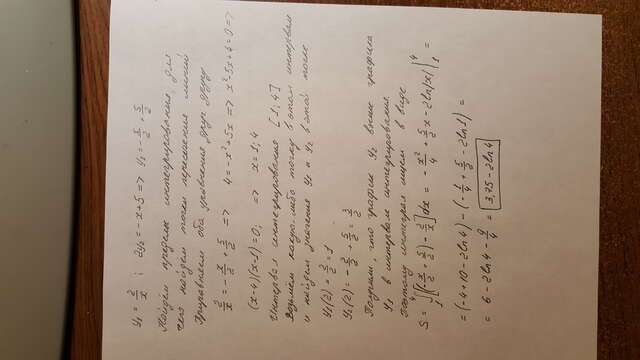 y₁ = 2/x ; 2y₂ = -x+5 => y₂ = -x/2 + 5/2
Найдём пределы интегрирования, для
чего найдем точки пересечения линий
Приравняем оба уравнения друг другу
2/x = -x/2 + 5/2 => 4 = -x²+5x => x²-5x+4=0 =>
(x-4)(x-1)=0; => x=1;4
Интервал интегрирования [1;4]
Возьмём какую-либо точку в этом интервале
и найдем значения y₁ и y₂ в этой точке
y₁(2) = 2/2 = 1
y₂(2) = -2/2 + 5/2 = 3/2
Получим, что график y₂ выше графика
y₁ в интервале интегрирования
Поэтому интеграл ищем в виде
S = ∫₁⁴[(-x/2 + 5/2) - 2/x]dx = -x²/4 + 5/2 x - 2ln|x| |₁⁴ =
= (-4+10-2ln4) - (-1/4 + 5/2 - 2ln1) =
= 6 - 2ln4 - 9/4 = 3,75 - 2ln4